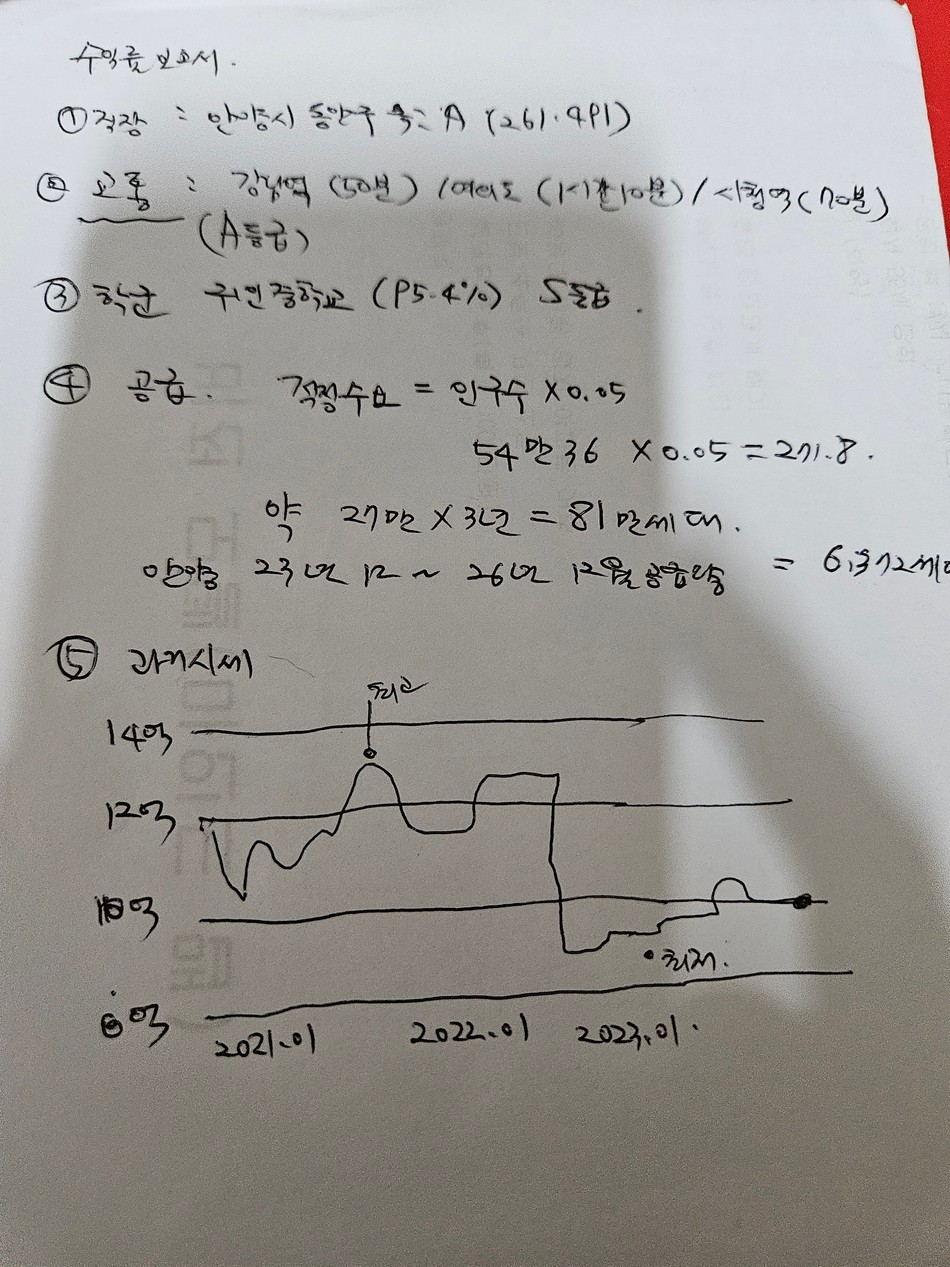 수익률 보고서.
① 직장 : 안양시 동안구 A (261.491)
② 교통 : 강남역 (50분) / 여의도 (1시간10분) / 시청역 (70분)
(A등급)
③ 학군 귀인중학교 (95.4%) S등급.
④ 공급. 적정수요 = 인구수 X 0.05
54만 36 X 0.05 = 271.8.
약 27만 X 3년 = 81만세대.
안양 23년 12 ~ 26년 12월 공급량 = 6,372세대
⑤ 과거시세
최고
14억
12억
10억
최저.
8억
2021.01 2022.01 2023.01.